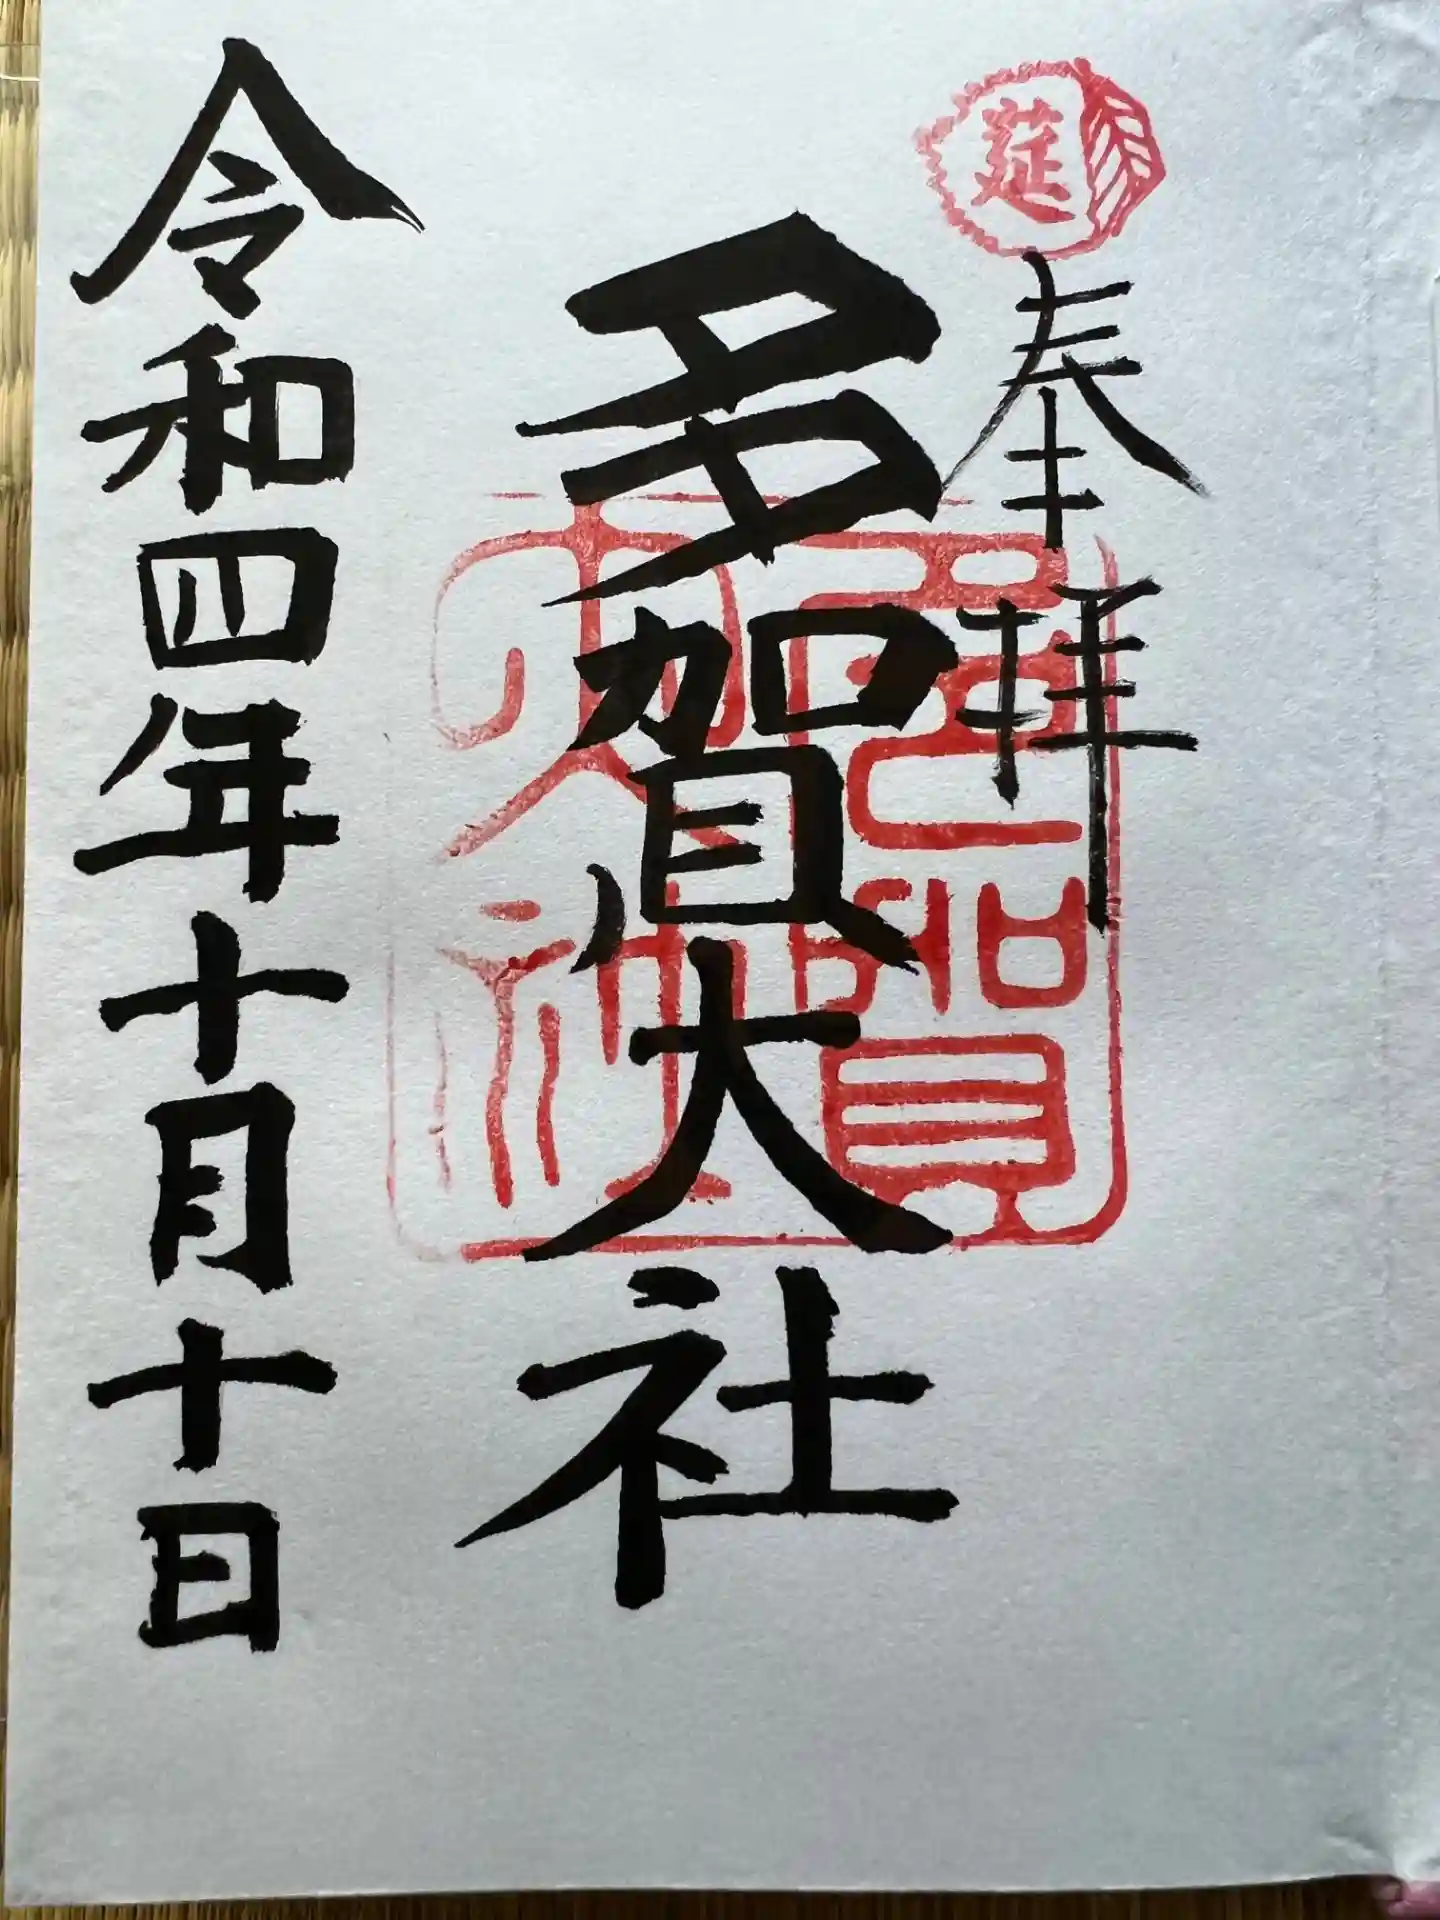 莚
奉拝
多賀大社
多賀大社
令和四年十月十日